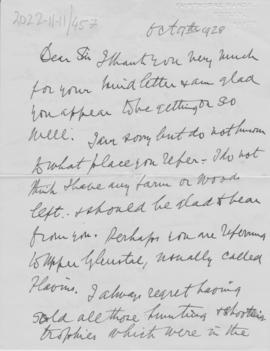 2022-11-11/457
Oct 1928
Dear Sir I thank you very much
for your kind letter & am glad
you appear to be getting on so
well. I am sorry but do not know
to what place you refer - I do not
think I have any farm or woods
left. & should be glad to hear
from you. Perhaps you are referring
to Upper usually called
Flavins. I always regret having
sold all those hunting & shooting
trophies which were in the